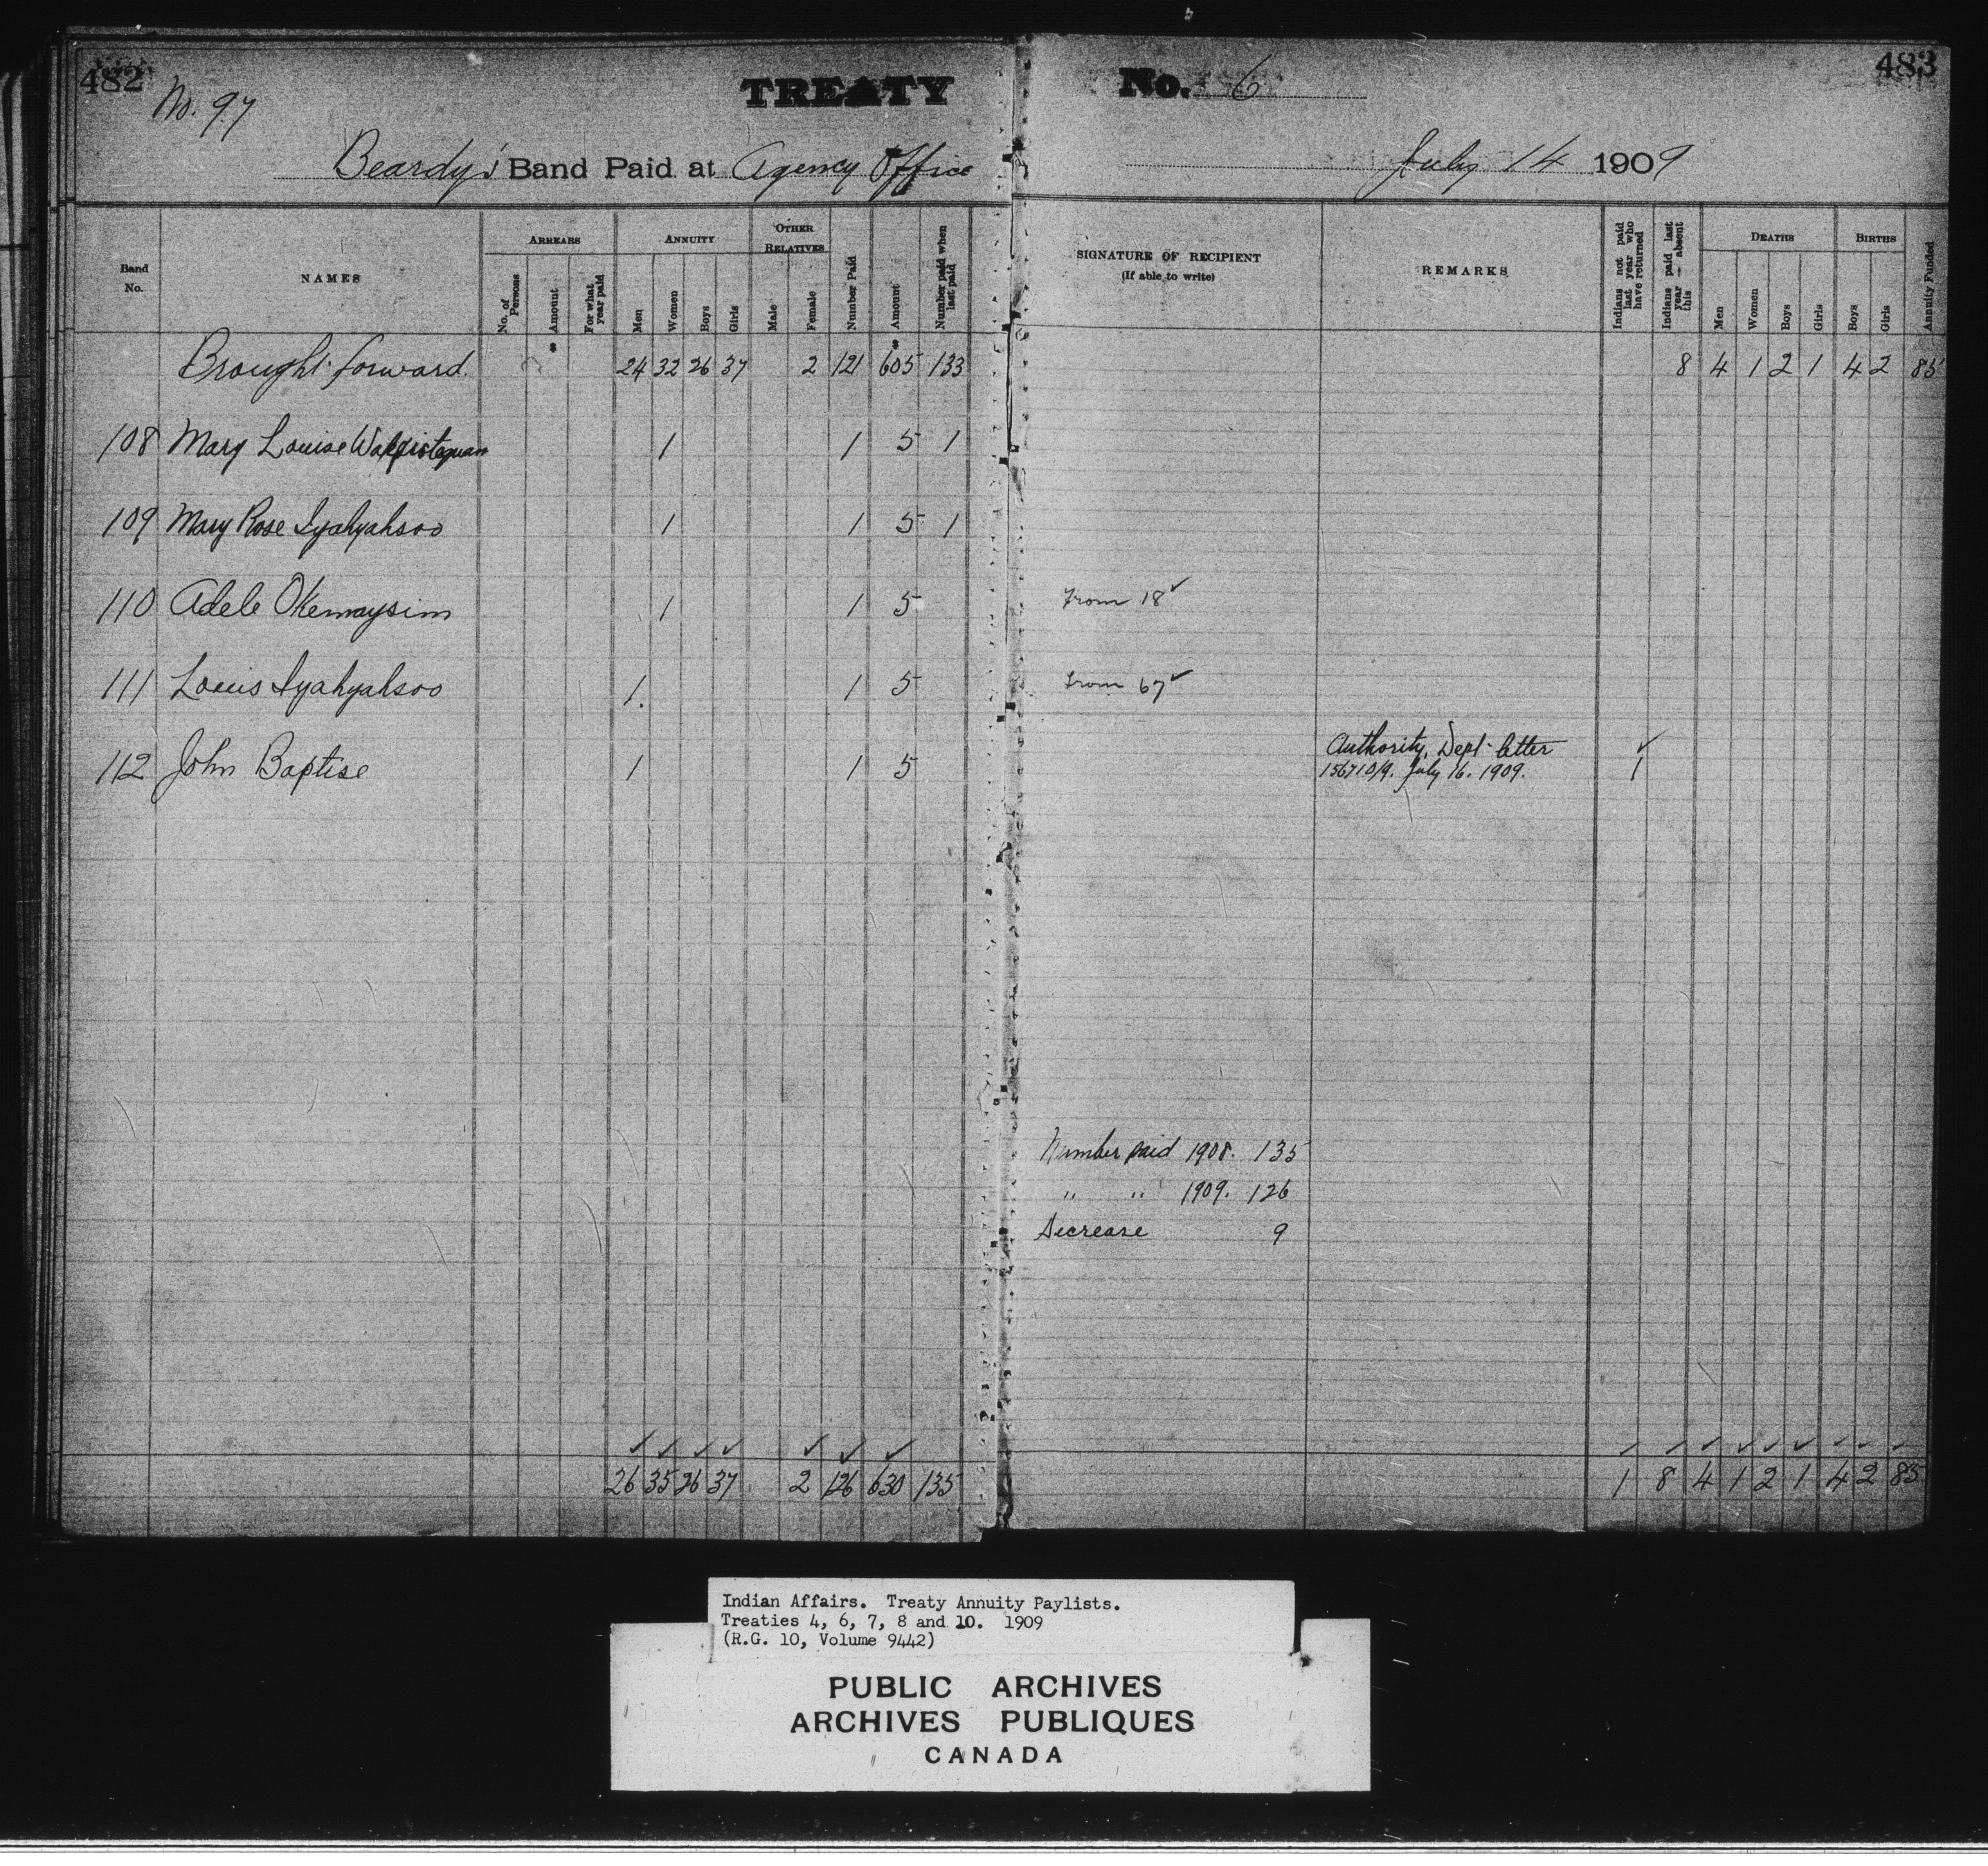 482
No. 97
TREATY No. 6
483
Beardy's Band Paid at Agency Office July 14 1909
Band No.
NAMES
ARREARS
No. of Persons
Amount
For what year paid
ANNUITY
Men
Women
Boys
Girls
OTHER RELATIVES
Male
Female
Number Paid
Amount
Number paid when last paid
SIGNATURE OF RECIPIENT
(If able to write)
REMARKS
Indians not paid last year who have returned
Indians paid last year — absent this
DEATHS
Men
Women
Boys
Girls
BIRTHS
Boys
Girls
Annuity Funded
$ $
Brought forward 24 32 26 37 2 121 605 133 8 4 1 2 1 4 2 85
108 Mary Louise 1 1 5 1
109 Mary Rose Iyahyahsoo 1 1 5 1
110 Adele Okemaysim 1 1 5 From 18 ✓
111 Louis Iyahyahsoo 1 1 5 From 67 ✓
112 John Baptise 1 1 5 Authority, Dept. letter ✓
156710/9. July 16. 1909. 1
Number paid 1908. 135
" " 1909. 126
Decrease 9
✓ ✓ ✓ ✓ ✓ ✓ ✓ ✓ ✓ ✓ ✓ ✓ ✓ ✓ ✓ ✓
26 35 26 37 2 126 630 135 1 8 4 1 2 1 4 2 85
Indian Affairs. Treaty Annuity Paylists.
Treaties 4, 6, 7, 8 and 10. 1909
(R.G. 10, Volume 9442)
PUBLIC ARCHIVES
ARCHIVES PUBLIQUES
CANADA